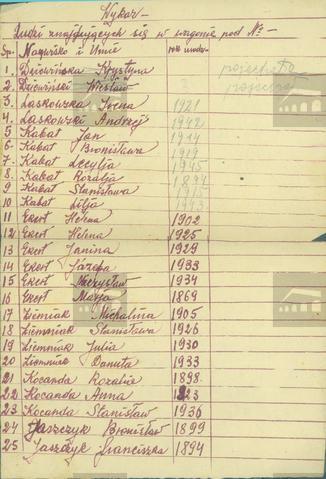 Wykaz
Ludzi znajdujących się w wagonie pod №
Lp. Nazwisko i Imię rok urodz.
1. Dziewińska Krystyna pojechała
2. Dziewiński Wiesław
3. Laskowska Irena 1921
4. Laskowski Andrzej 1942
5 Kabat Jan 1914
6. Kabat Bronisława 1919
7 Kabat Lecylja 1945
8 Kabat Rozalja
9 Kabat Stanisława
10 Kabat Lilja
11 Ekert Helena 1902
12 Ekert Helena 1925
13 Ekert Janina 1929
14 Ekert Józefa 1933
15 Ekert Mieczysław 1934
16 Ekert Marja 1869
17 Ziemniak Michalina 1905
18 Ziemniak Stanisława 1926
19 Ziemniak Julia 1930
20 Ziemniak Danuta 1933
21 Kocanda Rozalia 1898
22 Kocanda Anna
23 Kocanda Stanisław 1936
24 Jaszczyk Bronisław 1899
25 Jaszczyk Franciszka 1894